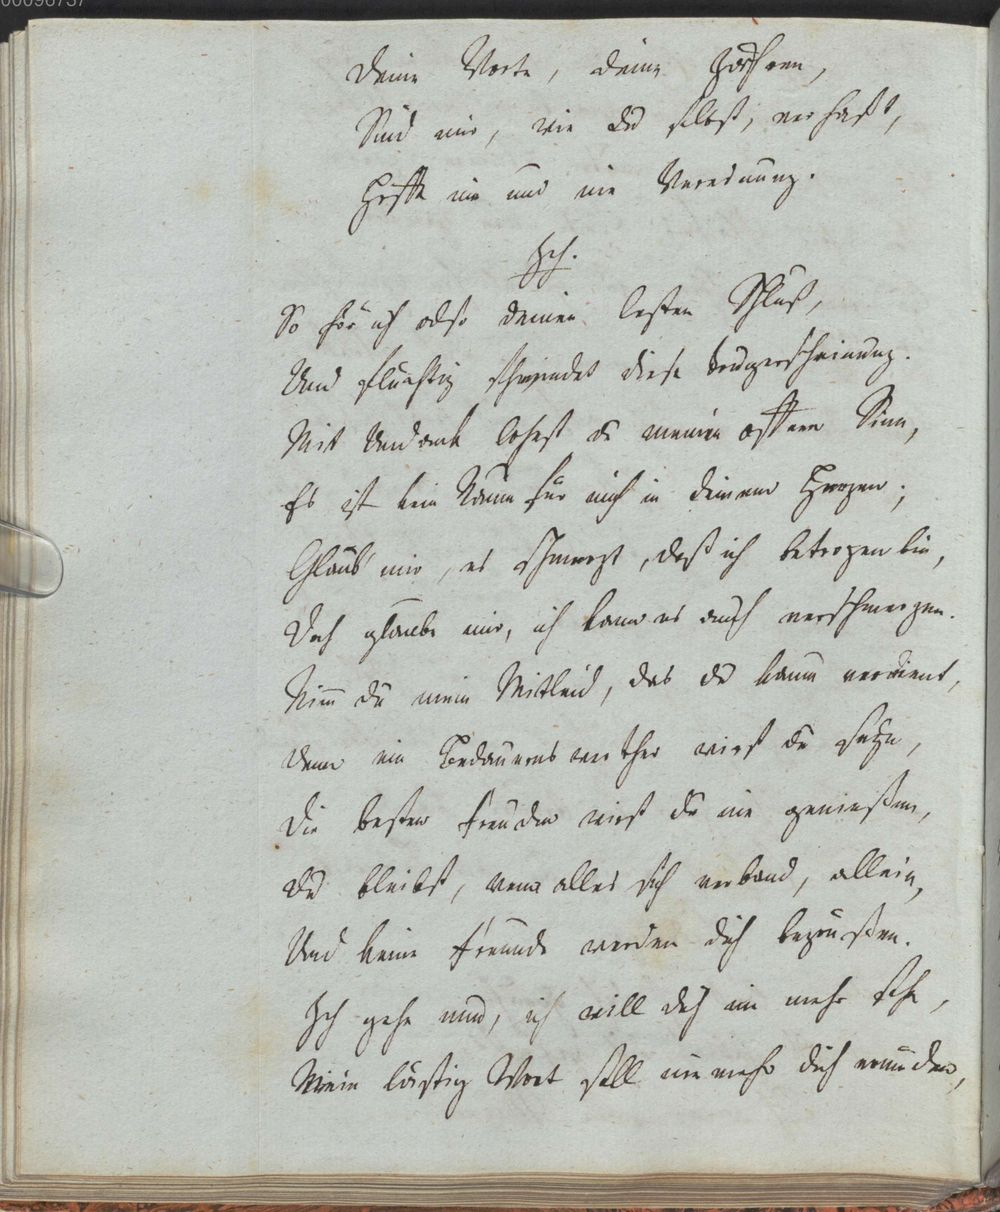 00096737
Deine Worte, deine
Sind mir, wie du selbst, verhaßt,
Hoffe nie und nie Veresnung.
Ich.
So hör ich also deinen lesten Schluß,
Und fluchtig schwindet diese Trugerscheinung.
Mit Undank lohnst du meinen offnen Sinn,
Es ist kein Raum für mich in deinem Herzen;
Glaub mir, es schmerzt, daß ich betrogen bin,
Doch glaube mir, ich kann es auch verschmerzen.
Nim du mein Mitleid, das du kaum verdienst,
Denn ein Bedauernswerther wirst du seyn,
Die besten Freuden wirst du nie genießen,
Du bleibst, wenn alles sich verband, allein,
Und keine Freunde werden dich begrußen.
Ich gehe nun, ich will dich nie mehr sehn,
Mein lästig Wort soll nie mehr dich ermüden,